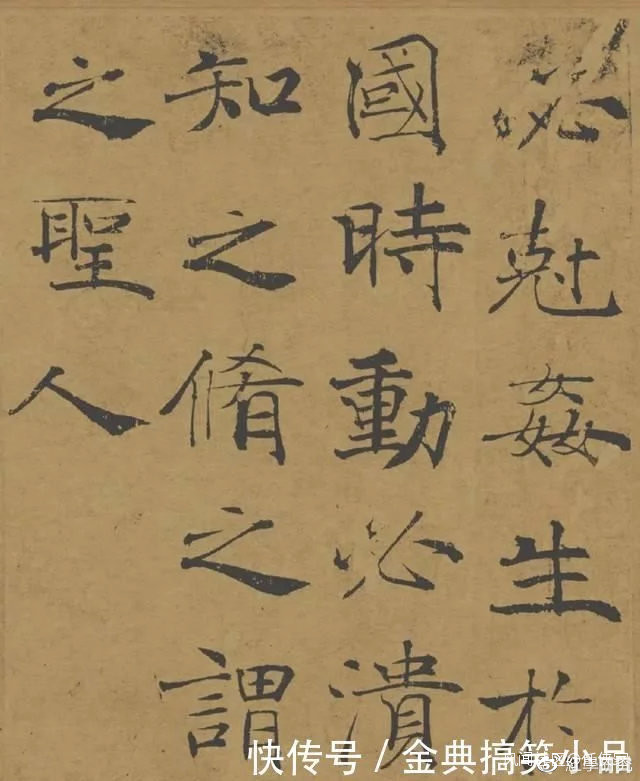 必尅姦生於
國時動必潰
知之脩之謂
之聖人
快传号／金典搞笑小品